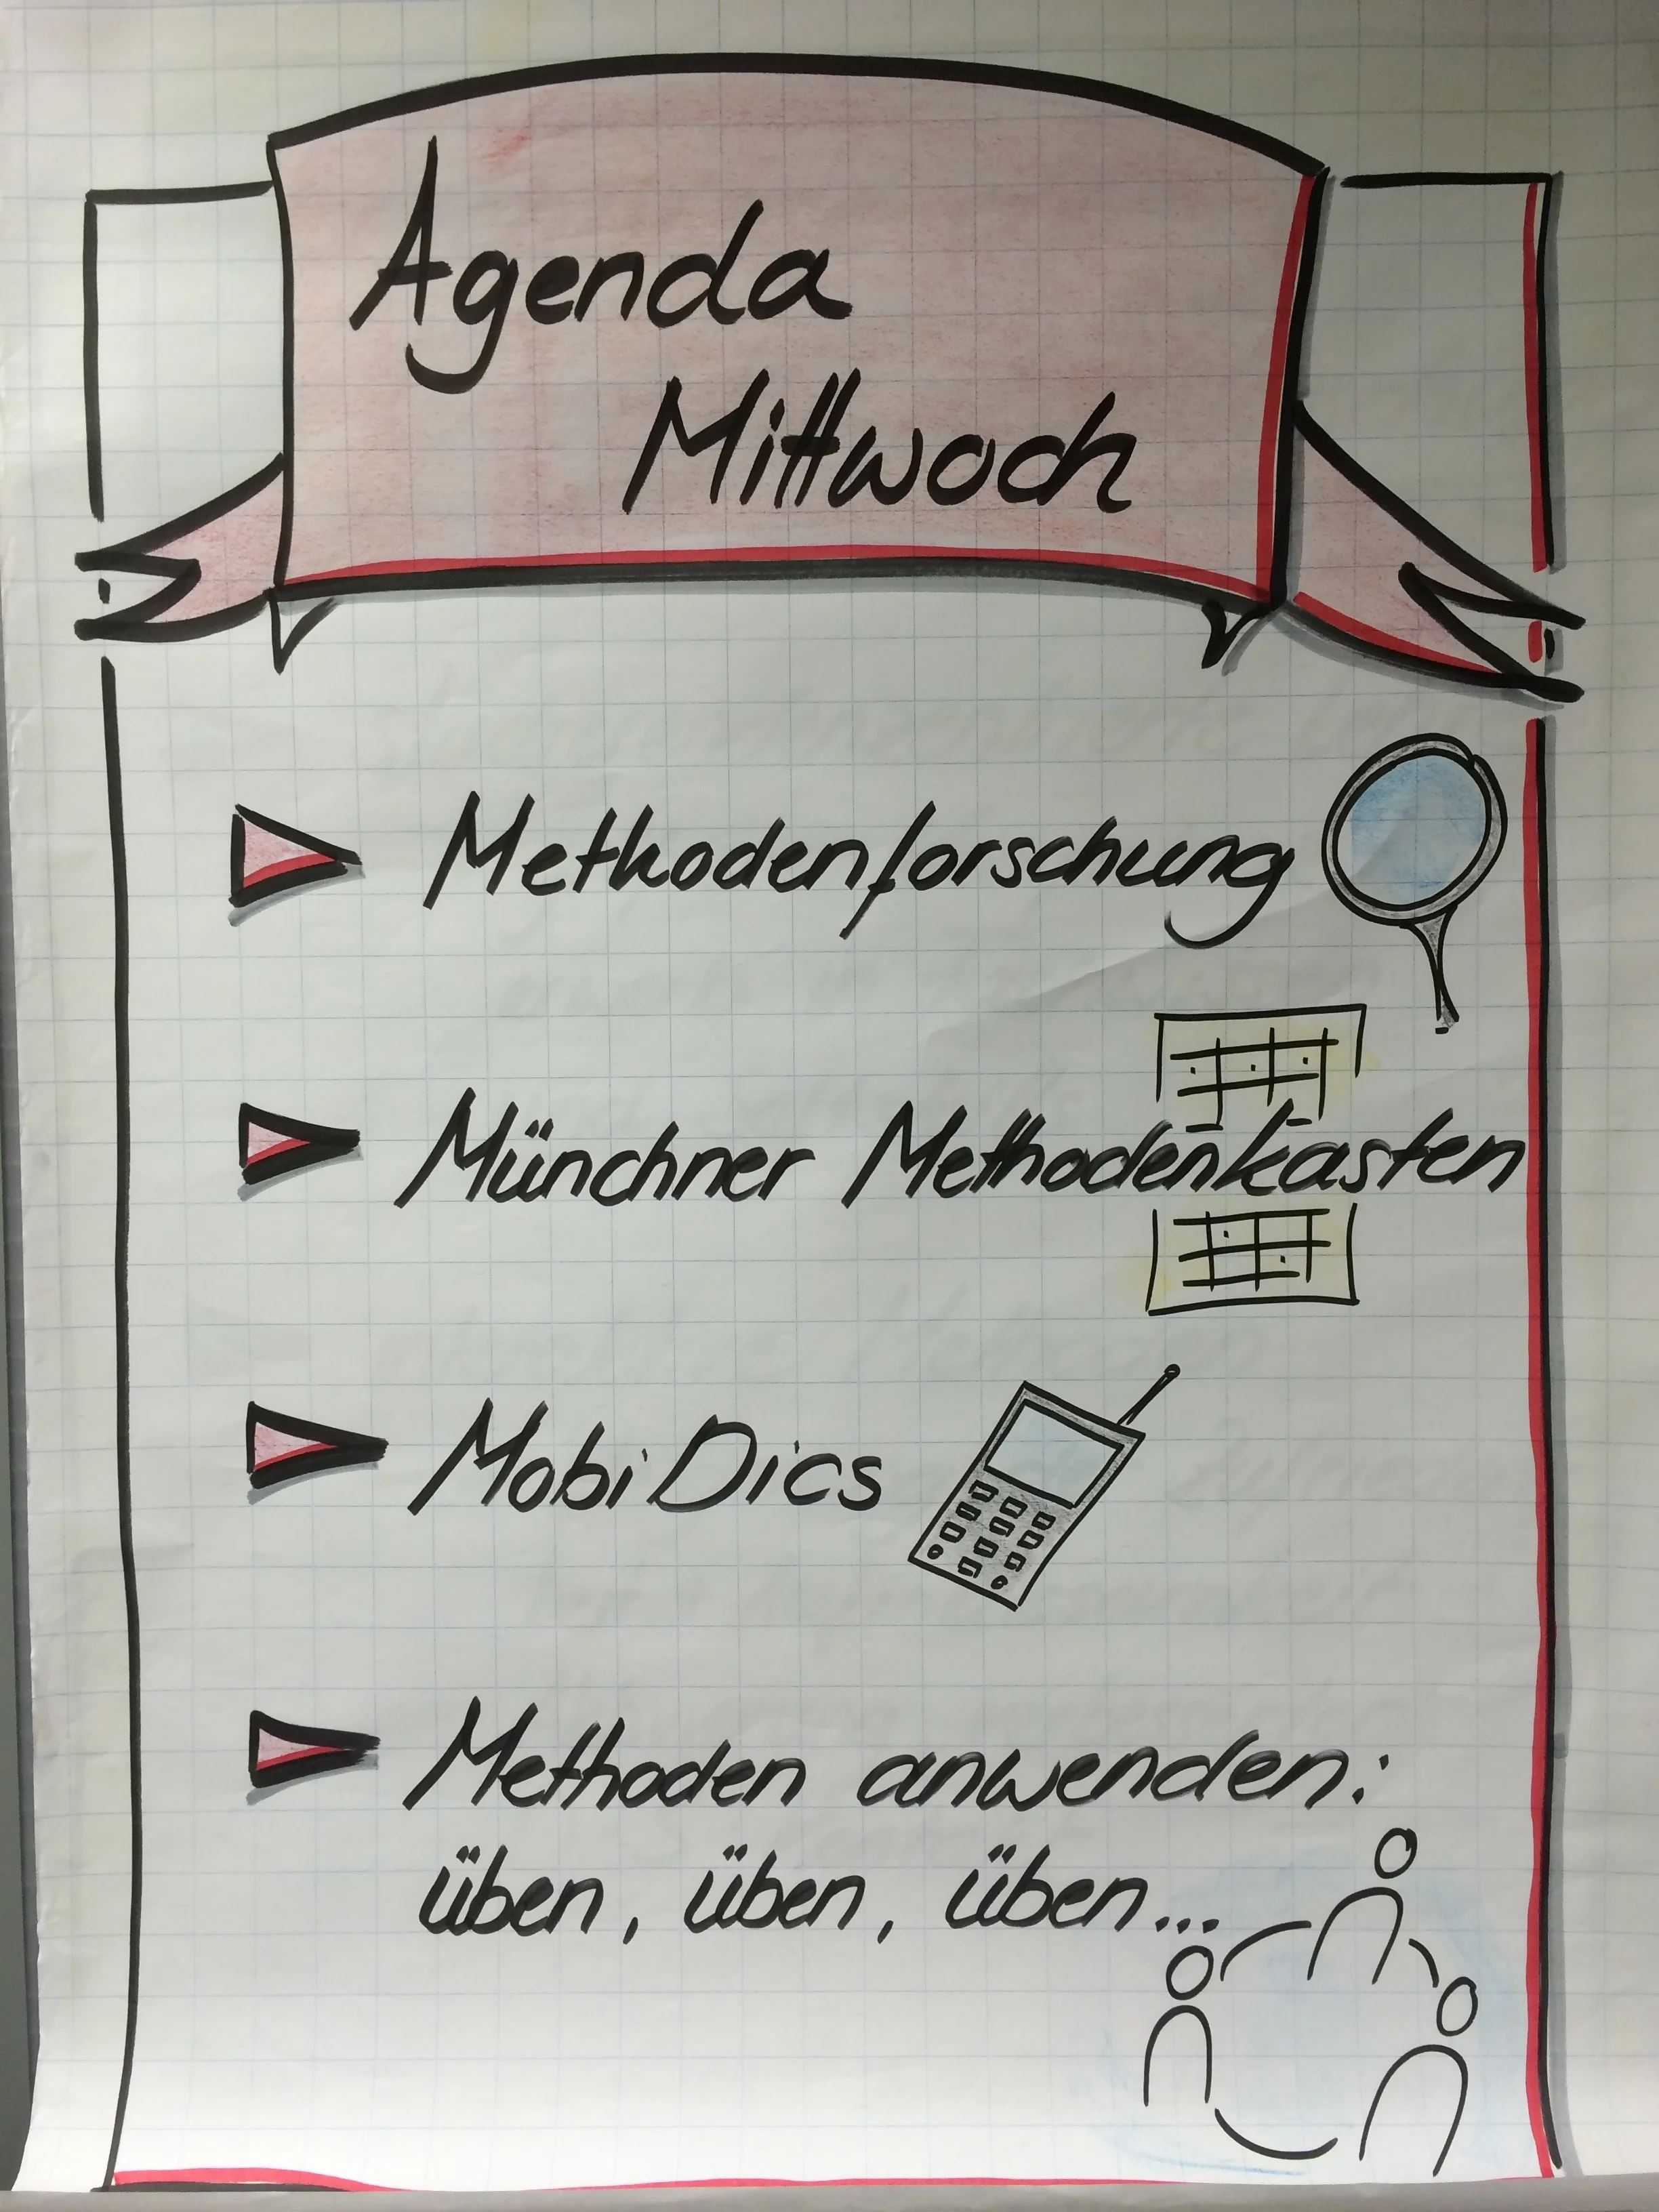 Agenda
Mittwoch
Methodenforschung
Münchner Methodenkasten
MobiDics
Methoden anwenden:
üben, üben, üben...